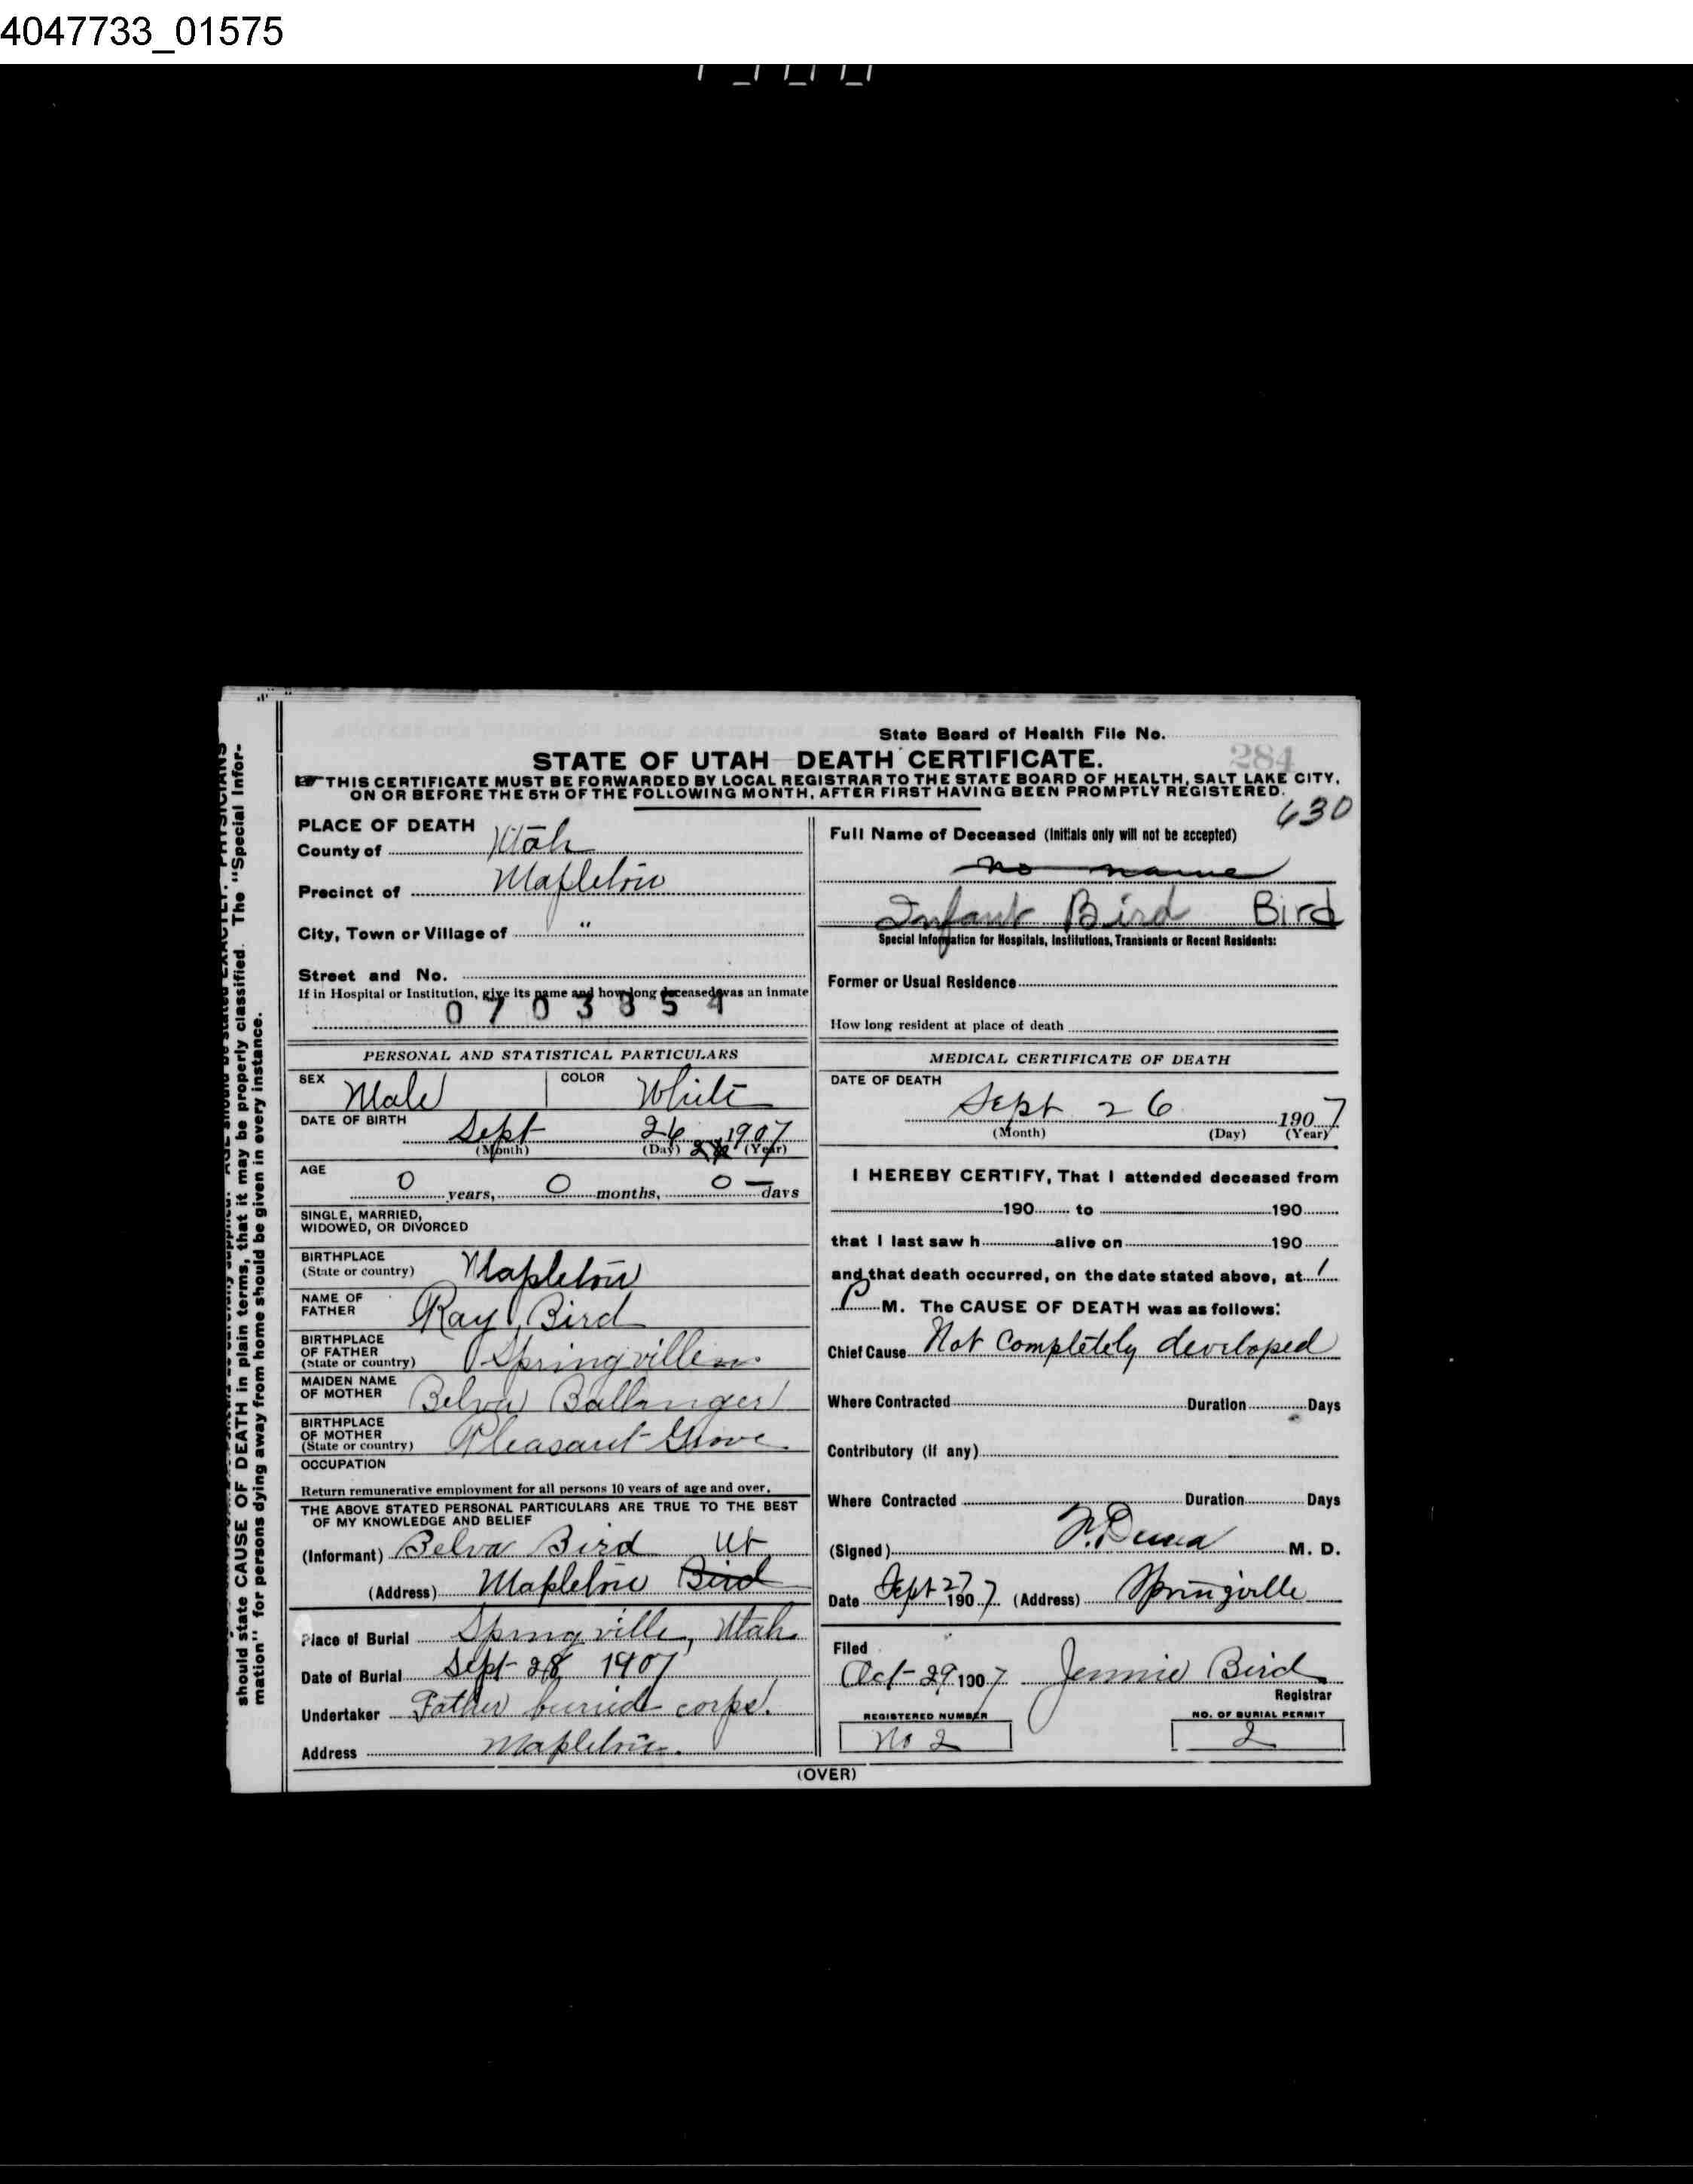 4047733_01575
State Board of Health File No.
284
STATE OF UTAH—DEATH CERTIFICATE.
THIS CERTIFICATE MUST BE FORWARDED BY LOCAL REGISTRAR TO THE STATE BOARD OF HEALTH, SALT LAKE CITY,
ON OR BEFORE THE 5TH OF THE FOLLOWING MONTH, AFTER FIRST HAVING BEEN PROMPTLY REGISTERED.
630
should state CAUSE OF DEATH in plain terms, that it may be properly classified. The "Special Infor-
mation" for persons dying away from home should be given in every instance.
PLACE OF DEATH
County of Utah
Precinct of Mapleton
City, Town or Village of "
Street and No.
If in Hospital or Institution, give its name and how long deceased was an inmate
0703854
PERSONAL AND STATISTICAL PARTICULARS
SEX Male COLOR White
DATE OF BIRTH Sept 26 1907
(Month) (Day) (Year)
AGE 0 years, 0 months, 0 — days
SINGLE, MARRIED,
WIDOWED, OR DIVORCED
BIRTHPLACE
(State or country) Mapleton
NAME OF
FATHER Ray Bird
BIRTHPLACE
OF FATHER
(State or country) Springville
MAIDEN NAME
OF MOTHER Belva Ballanger
BIRTHPLACE
OF MOTHER
(State or country) Pleasant Grove
OCCUPATION
Return remunerative employment for all persons 10 years of age and over.
THE ABOVE STATED PERSONAL PARTICULARS ARE TRUE TO THE BEST
OF MY KNOWLEDGE AND BELIEF
(Informant) Belva Bird Ut
(Address) Mapleton Bird
Place of Burial Springville, Utah
Date of Burial Sept 28 1907
Undertaker Father buried corps.
Address Mapleton
Full Name of Deceased (Initials only will not be accepted)
No name
Infant Bird Bird
Special Information for Hospitals, Institutions, Transients or Recent Residents:
Former or Usual Residence
How long resident at place of death
MEDICAL CERTIFICATE OF DEATH
DATE OF DEATH
Sept 26 1907
(Month) (Day) (Year)
I HEREBY CERTIFY, That I attended deceased from
190 to 190
that I last saw h alive on 190
and that death occurred, on the date stated above, at 1
P M. The CAUSE OF DEATH was as follows:
Chief Cause Not Completely developed
Where Contracted Duration Days
Contributory (if any)
Where Contracted Duration Days
(Signed) M. D.
Date Sept 27 1907. (Address) Springville
Filed
Oct 29 1907 Jennie Bird
Registrar
REGISTERED NUMBER NO. OF BURIAL PERMIT
No 2 2
(OVER)